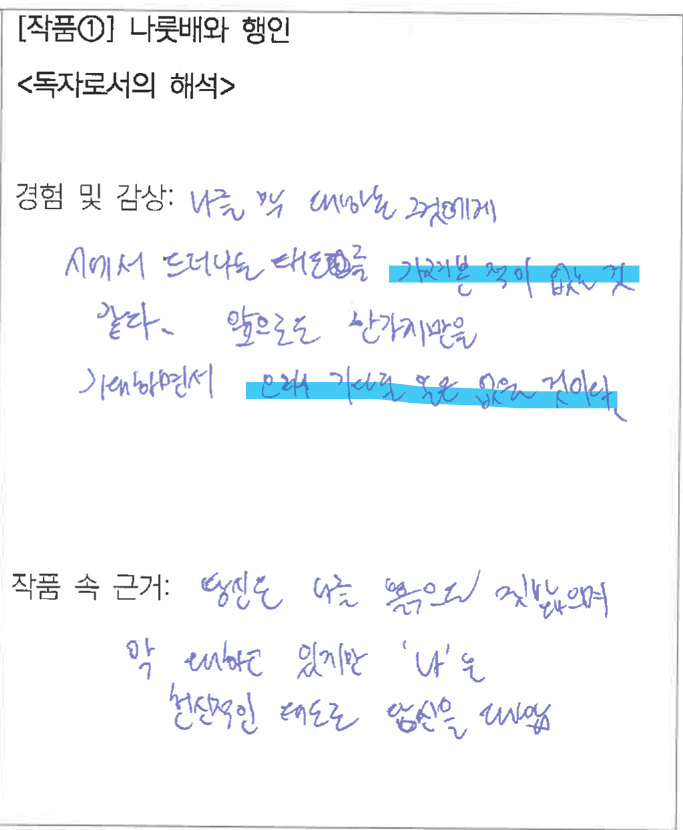 [작품①] 나룻배와 행인
<독자로서의 해석>
경험 및 감상: 나를 막 대하는 그것에게
시에서 드러나는 태도를 가져본 적이 없는 것
같다. 앞으로도 안가지만을
기대하면서 오래 기다릴 일은 없을 것이다
작품 속 근거: 당신은 나를 흙으로 짓밟으며
막 대하고 있지만 '나'는
헌신적인 태도로 당신을 대함